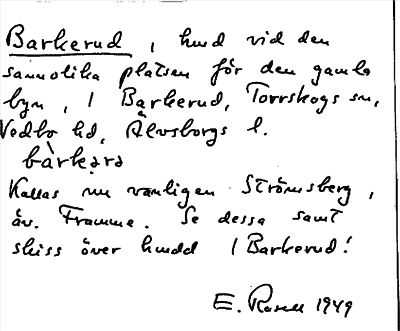 Barkerud, hmd vid den
sannolika platsen för den gamla
byn, i Barkerud, Torrskogs sn,
Vedbo hd, Älvsborgs l.
bàrkərə
Kallas nu vanligen Strömsberg,
äv. Framme. Se dessa samt
skiss över hmdd i Barkerud!
E. Rosell 1949